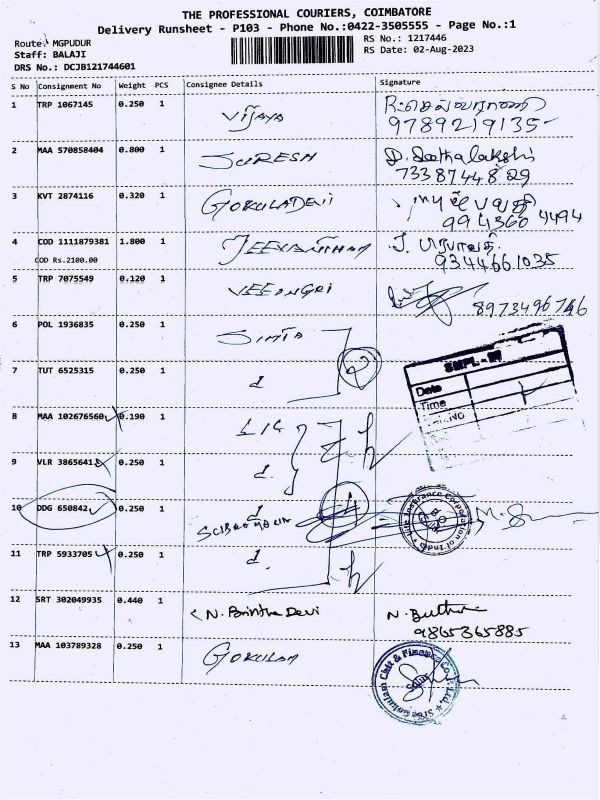 THE PROFESSIONAL COURIERS, COIMBATORE
Delivery Runsheet - P103 - Phone No.:0422-3505555 - Page No.:1
Route: MGPUDUR
RS No.: 1217446
Staff: BALAJI
RS Date: 02-Aug-2023
DRS No.: DCJB121744601
S No Consignment No Weight PCS Consignee Details Signature
1 TRP 1067145 0.250 1 VIJAYA
9789219135
2 MAA 570858404 0.800 1 SURESH D.
7338744829
3 KVT 2874116 0.320 1 GOKULADEVI
994360 4494
4 COD 1111879381 1.800 1 J.
COD Rs.2100.00
9344661035
5 TRP 7075549 0.120 1
8973496746
6 POL 1936835 0.250 1
7 TUT 6525315 0.250 1 d
SMPL
Date
Time
NO
8 MAA 102676560 0.190 1 LIC
9 VLR 3865641 0.250 1 d
10 DDG 650842 0.250 1 d
Life Insurance Corporation of India
M.
11 TRP 5933705 0.250 1 d
12 SRT 302049935 0.440 1 N. Brintha Devi N.
9865365885
13 MAA 103789328 0.250 1 GOKULAM
Sree Gokulam Chit & Finance Co. (P) Ltd.,